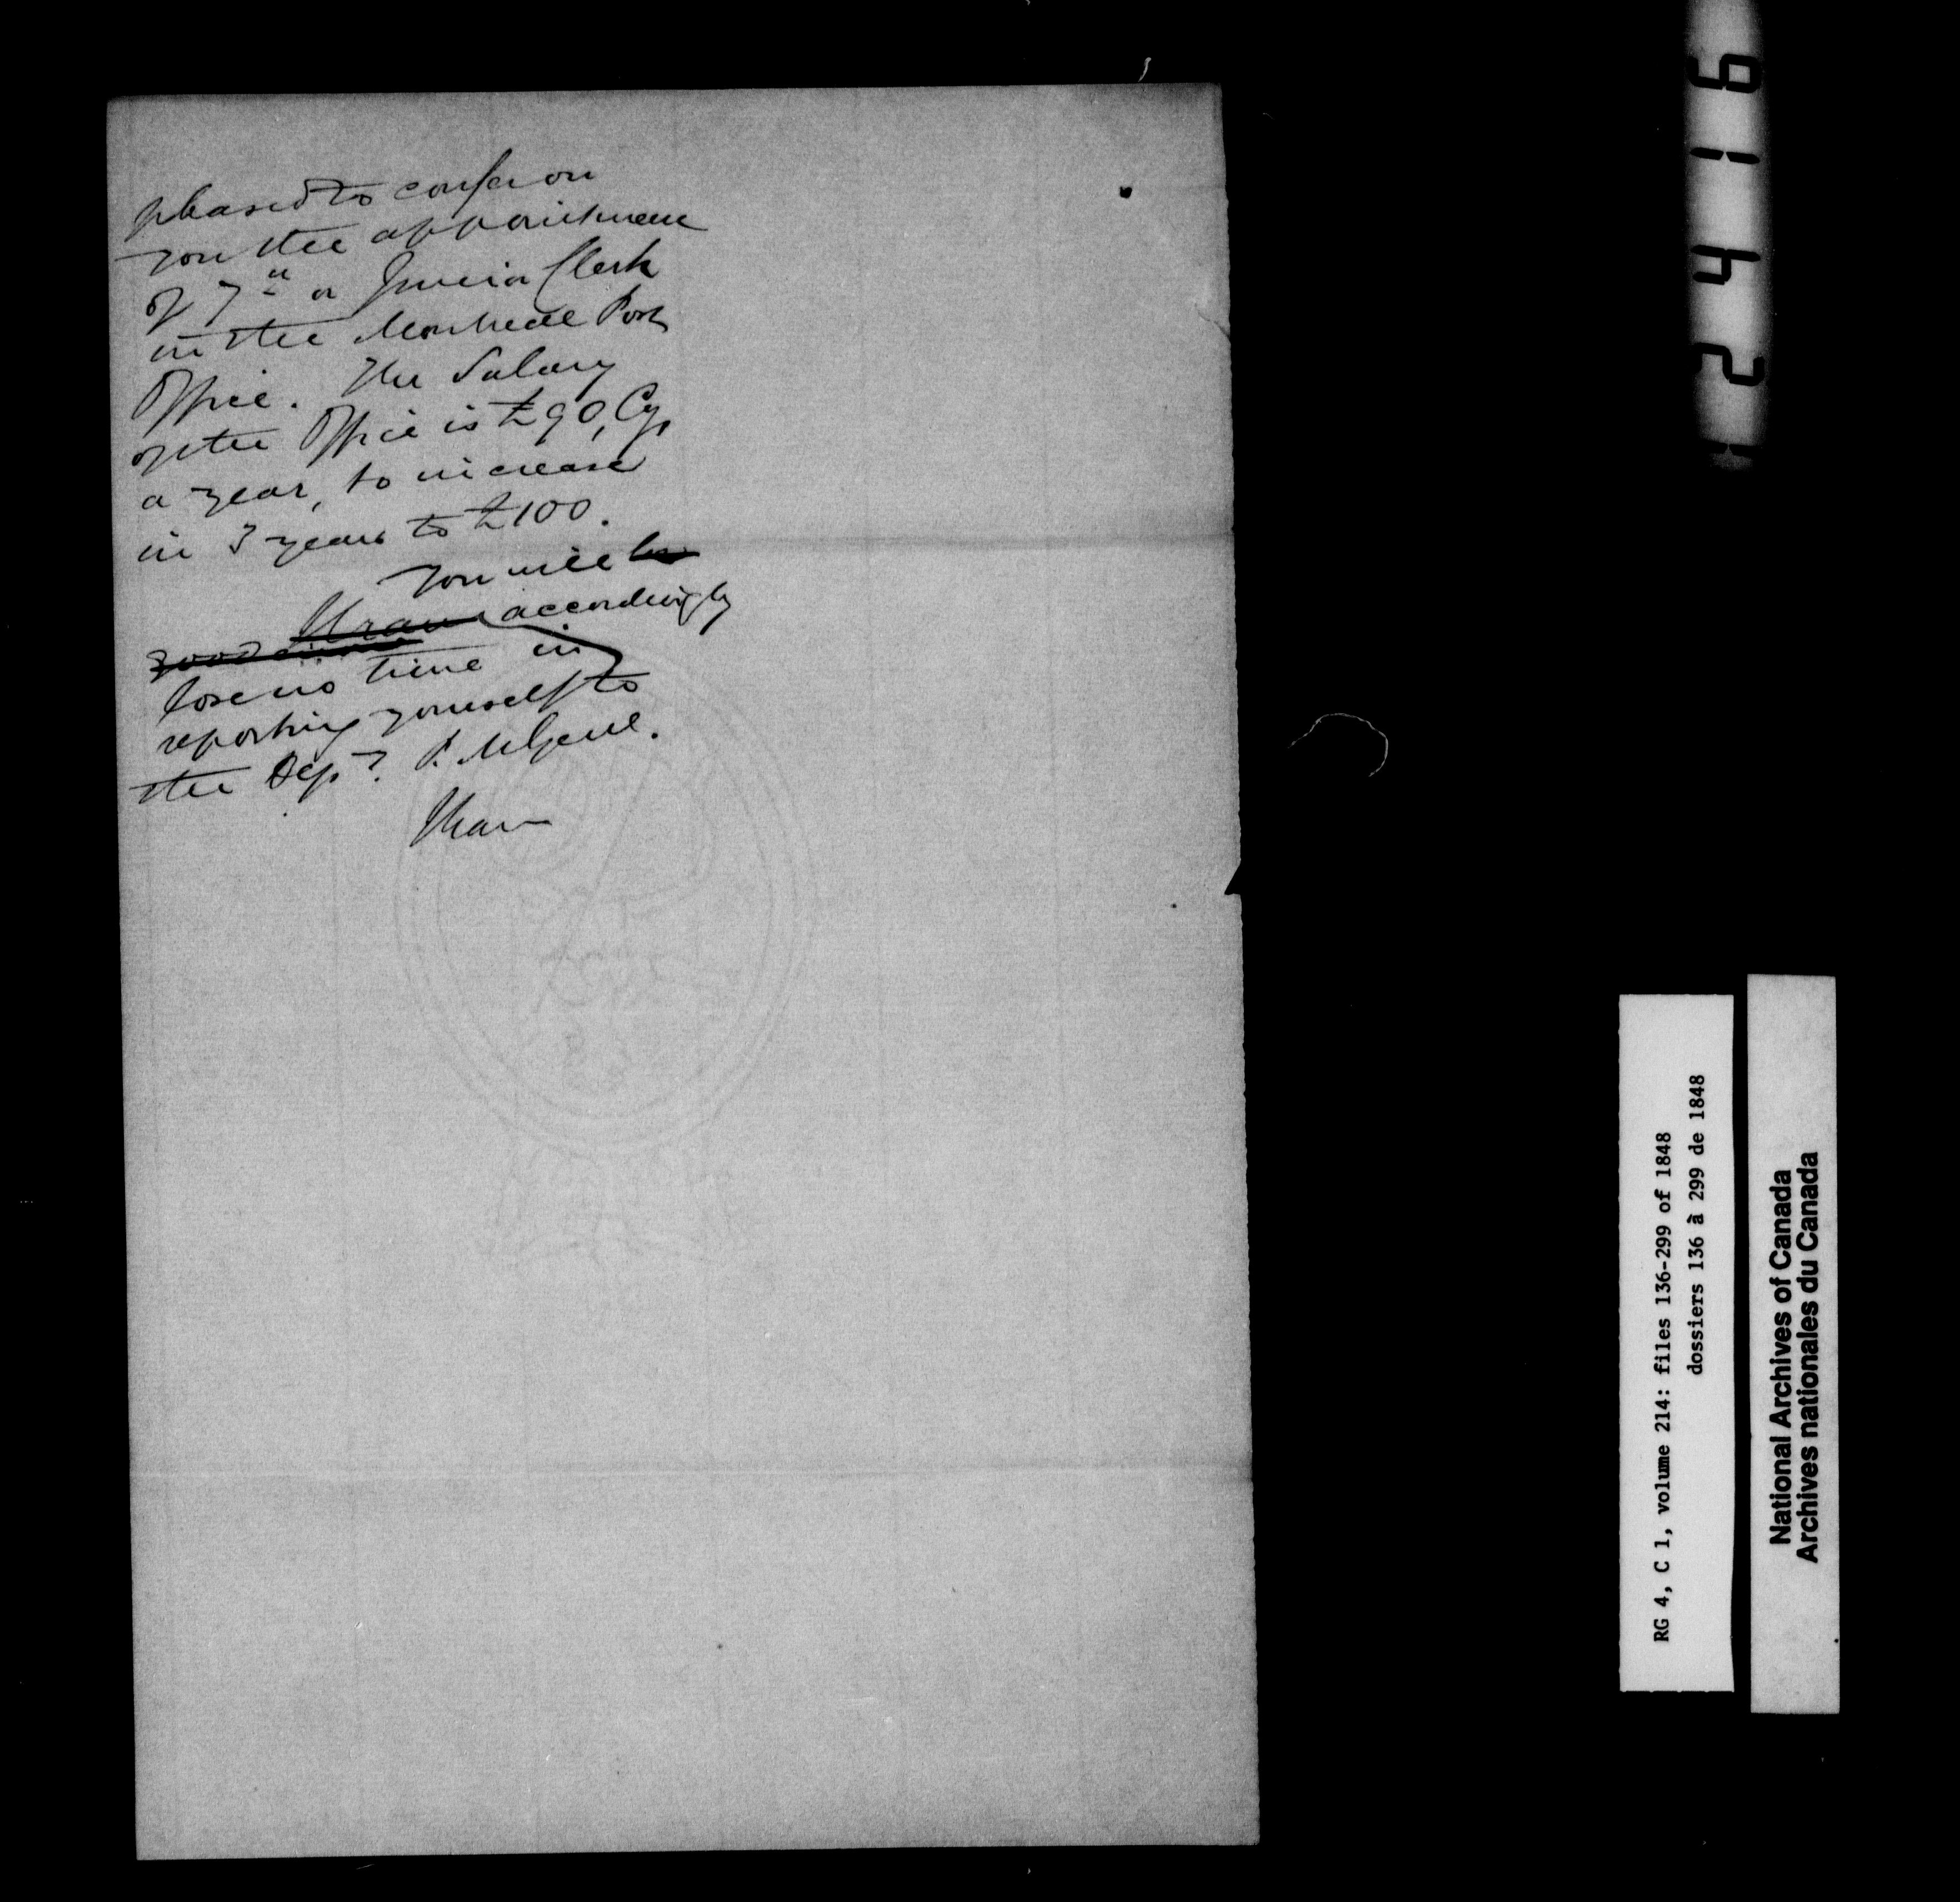 pleased to confer on
you the appointment
of 7th or Junior Clerk
in the Montreal Post
Office. The Salary
of the Office is £90, Cy,
a year, to increase
in 3 years to £100.
You will
accordingly
lose no time in
reporting yourself to
the Dep? P. M Genl.
I have
6142
RG 4, C 1, volume 214: files 136-299 of 1848
dossiers 136 à 299 de 1848
National Archives of Canada
Archives nationales du Canada